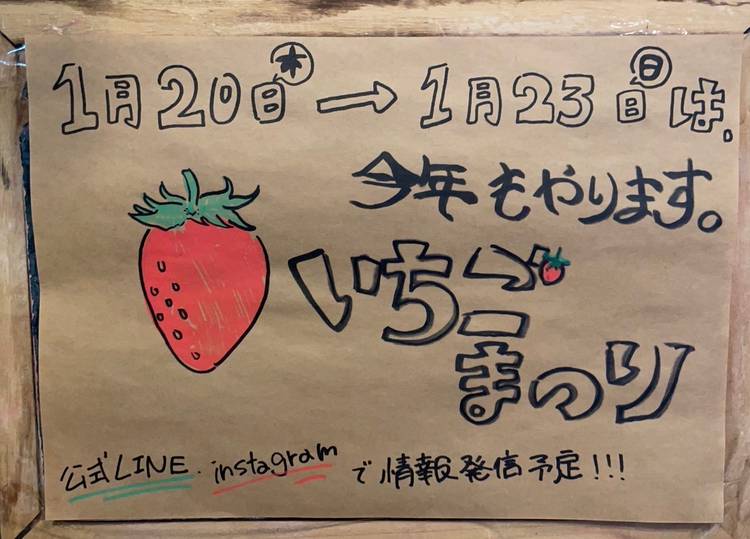 1月20日㊍→1月23日㊐は、
今年もやります。
いちご
まつり
公式LINE.instagramで情報発信予定!!!